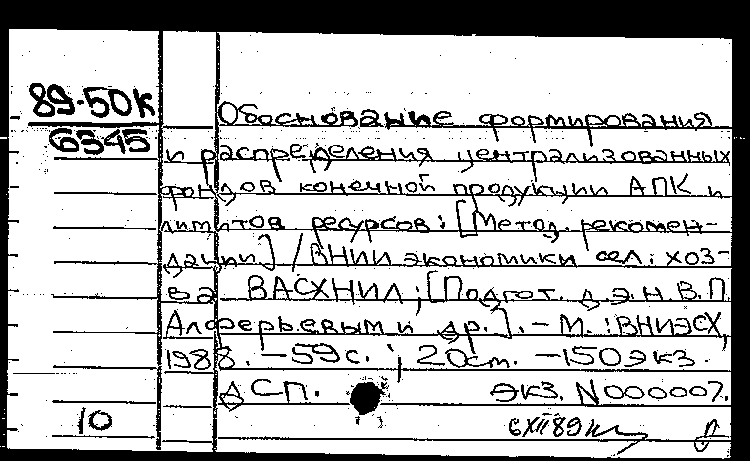 89-50К
6345
Обоснование формирования
и распределения централизованных
фондов конечной продукции АПК и
лимитов ресурсов: [Метод. рекомен-
дации] / ВНИИ экономики сел. хоз-
ва ВАСХНИЛ; [Подгот. д.э.н. В.П.
Алферьевым и др.]. - М.: ВНИЭСХ,
1988. - 59 с.; 20 см. - 150 экз.
ДСП. Экз. N000007.
10
6XII89